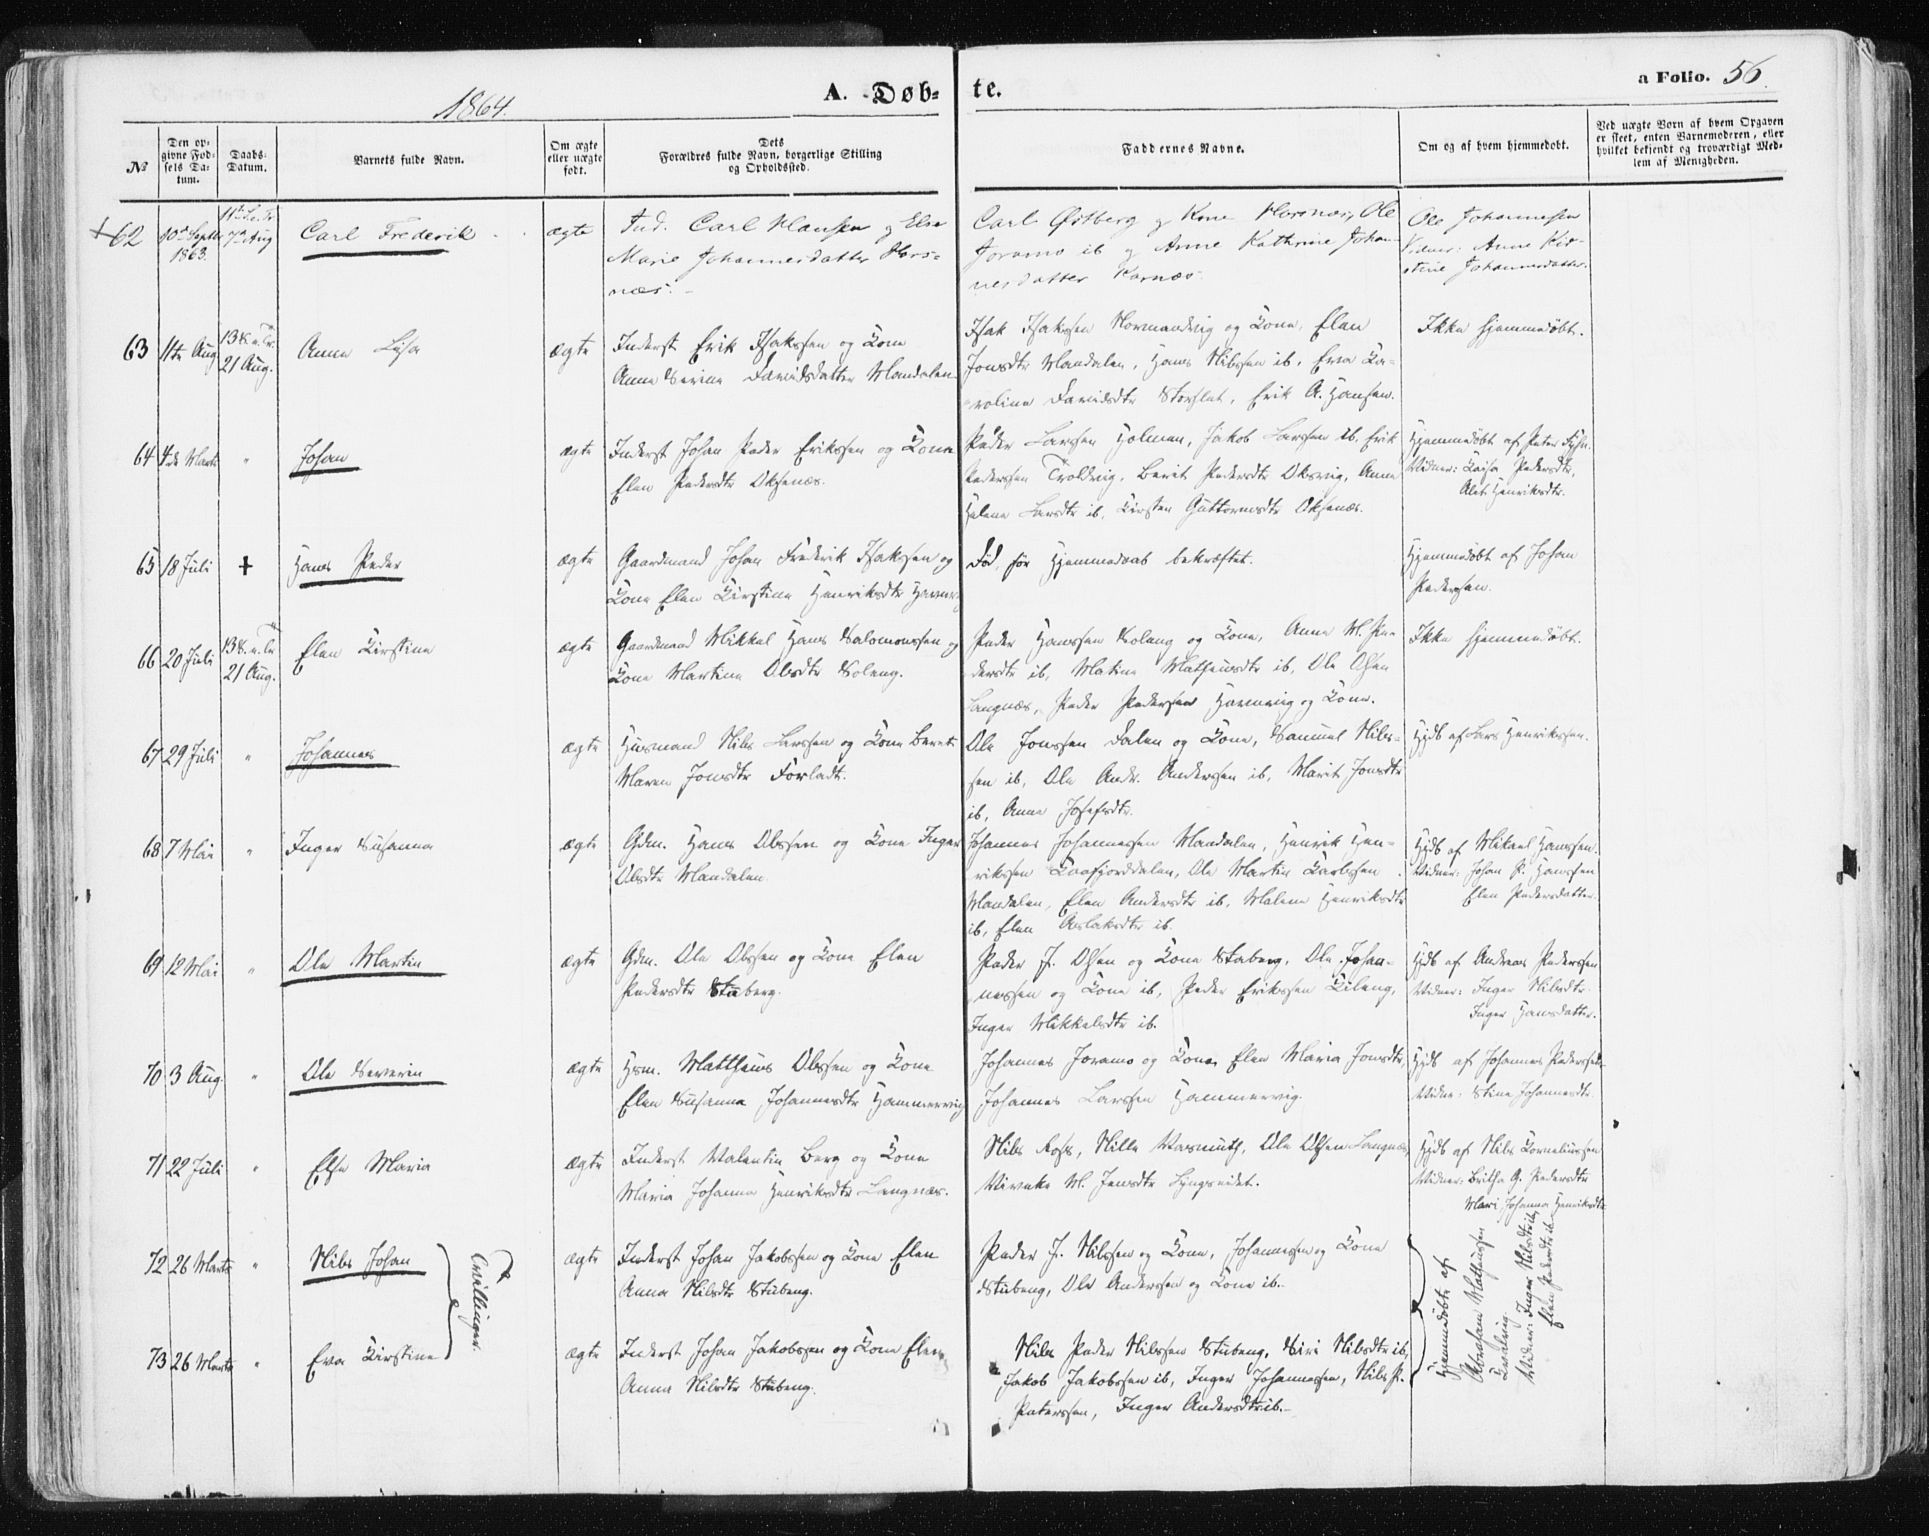 1864.
A. Døb-
te.
a Folio. 56.
№
Den op-
givne Fød-
sels Da-
tum.
Daabs-
Datum.
Barnets fulde Navn.
Om ægte
eller uægte
født.
Dets
Forældres fulde Navn, borgerlige Stilling
og Opholdssted.
Faddernes Navne.
Om og af hvem hjemmedøbt.
Ved uægte Børn af hvem Opgaven
er skeet, enten Barnemoderen, eller
hvilket bekjendt og troværdigt Med-
lem af Menigheden.
+ 62
10de Septbr
1863.
7de Aug
Carl Frederik
ægte
Ind. Carl Hansen og Else
Marie Johannesdatter Hors-
næs.
Carl Østberg og Kone Horsnæs, Ole
Joramo ib og Anne Kathrine Johan-
nesdatter Hornæs.
Ole Johannesen
Vidner: Anne Kir-
stine Johannesdatter.
63
11te Aug
13 S. e. Tr.
21 Aug.
Anne Lysa
ægte
Inderst Erik Isaksen og Kone
Anne Serine Davidsdatter Mandalen
Isak Isaksen Normandvig og Kone, Elen
Jonsdtr Mandalen, Hans Nilssen ib, Eva Ka-
roline Davidsdtr Storslet, Erik A. Hansen.
Ikke hjemmedøbt.
64
4de Marts
"
Johan
ægte
Inderst Johan Peder Erikssen og Kone
Elen Pedersdtr Oksenæs.
Peder Larssen Holmen, Jakob Larssen ib, Erik
Pedersen Troldvig, Berit Pedersdtr Oksvig, Anne
Helene Larsdtr ib, Kirsten Guttormsdtr Oksenæs.
Hjemmedøbt af Peter
Vidner: Kaisa Pedersdtr,
Alet Henriksdtr.
65
18 Juli
+
Hans Peder
ægte
Gaardmand Johan Frederik Isaksen og
Kone Elen Kirstine Henriksdtr
Død, før Hjemmedaab bekræftet.
Hjemmedøbt af Johan
Pedersen.
66
20 Juli
13 S. e. Tr
21 Aug.
Elen Kirstine
ægte
Gaardmand Mikkel Hans Salomonsen og
Kone Martine Olsdtr Soleng.
Peder Hanssen Soleng og Kone, Anne M. Pe-
dersdtr ib, Matine Matheusdtr ib, Ole Olsen
Langnæs, Peder Pedersen Havnvig og Kone.
Ikke hjemmedøbt.
67
29 Juli
"
Johannes
ægte
Husmand Nils Larssen og Kone Beret
Maren Jonsdtr Forladt.
Ole Jonssen Dalen og Kone, Samuel Nils-
sen ib, Ole Andr. Anderssen ib, Marit Jonsdtr
ib, Anne Josefsdtr.
Hjdb af Lars Henrikssen.
68
7 Mai
"
Inger Susanna
ægte
Gdm. Hans Olssen og Kone Inger
Olsdtr Mandalen.
Johannes Johannessen Mandalen, Henrik Hen-
rikssen Kaafjorddalen, Ole Martin Karlssen
Mandalen, Elen Andersdtr ib, Malene Henriksdtr
ib, Elen Aslaksdtr ib.
Hjdb af Mikael Hanssen.
Vidner: Johan P. Hanssen
Elen Pedersdatter.
69
12 Mai
"
Ole Martin
ægte
Gdm. Ole Olssen og Kone Elen
Pedersdtr Stuberg.
Peder J. Olsen og Kone Stuberg, Ole Johan-
nessen og Kone ib, Peder Erikssen Kileng,
Inger Mikkelsdtr ib.
Hjdb af Andreas Pedersen
Vidner: Inger Nilsdtr.
Inger Hansdatter.
70
3 Aug.
"
Ole Severin
ægte
Hsm. Mattheus Olssen og Kone
Elen Susanna Johannesdtr Hammervig
Johannes Joramo og Kone, Elen Maria Jonsdtr,
Johannes Larssen Hammervig.
Hjdb af Johannes Pedersen
Vidne: Stine Johannesdtr.
71
22 Juli
"
Else Maria
ægte
Inderst Valentin Berg og Kone
Maria Johanna Henriksdtr Langnæs.
Nils Foss, Nille Wasmuth, Ole Olsen Langnæs,
Wivike M. Jensdtr Lyngseidet.
Hjdb af Nils Korneliussen
Vidner: Britha G. Pedersdtr
Mari Johanna Henriksdtr
72
26 Marts
"
Nils Johan
Tvillinger.
ægte
Inderst Johan Jakobssen og Kone Elen
Anna Nilsdtr Stubeng.
Peder J. Nilssen og Kone, Johannessen og Kone
Stubeng, Ole Anderssen og Kone ib.
Hjemmedøbte af
Abraham Matheussen
Kvalvig
Vidner: Inger Nilsdtr ib,
Elen Pedersdtr ib.
73
26 Marts
"
Eva Kirstine
ægte
Inderst Johan Jakobssen og Kone Elen
Anna Nilsdtr Stubeng.
Nils Peder Nilssen Stubeng, Siri Nilsdtr ib,
Jakob Jakobssen ib, Inger Johannessen, Nils P.
Peterssen, Inger Andersdtr ib.